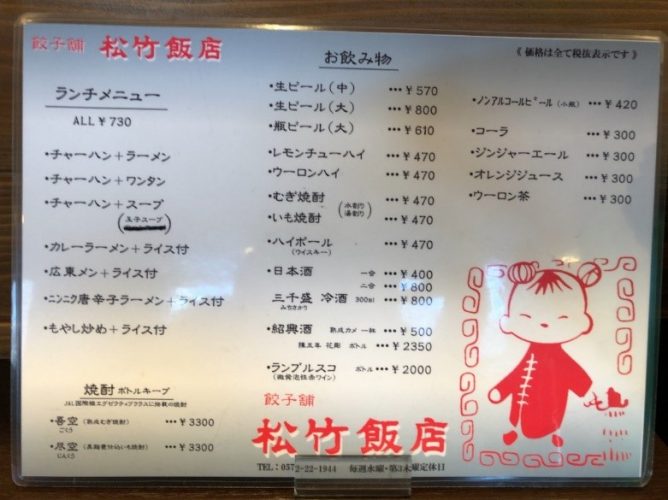 餃子舗 松竹飯店
ランチメニュー
ALL ¥730
・チャーハン+ラーメン
・チャーハン+ワンタン
・チャーハン+スープ
(玉子スープ)
・カレーラーメン+ライス付
・広東メン+ライス付
・ニンニク唐辛子ラーメン+ライス付
・もやし炒め+ライス付
焼酎 ボトルキープ
JAL国際線エグゼクティブクラスに搭載の焼酎
・吾空 (熟成むぎ焼酎) ・・・¥3300
ごくう
・尽空 (黒麹甕仕込いも焼酎) ・・・¥3300
じんくう
お飲み物
・生ビール(中) ・・・¥570
・生ビール(大) ・・・¥800
・瓶ビール(大) ・・・¥610
・レモンチューハイ ・・・¥470
・ウーロンハイ ・・・¥470
・むぎ焼酎 (水割り 湯割り) ・・・¥470
・いも焼酎 ・・・¥470
・ハイボール ・・・¥470
(ウイスキー)
・日本酒 一合 ・・・¥400
二合 ・・・¥800
三千盛 冷酒 300ml ・・・¥800
みちさかり
・紹興酒 熟成カメ 一杯 ・・・¥500
陳五年 花彫 ボトル ・・・¥2350
・ランブルスコ ボトル ・・・¥2000
(微発泡性赤ワイン)
《価格は全て税抜表示です》
・ノンアルコールビール (小瓶) ・・・¥420
・コーラ ・・・¥300
・ジンジャーエール ・・・¥300
・オレンジジュース ・・・¥300
・ウーロン茶 ・・・¥300
餃子舗
松竹飯店
TEL:0572-22-1944 毎週水曜・第3木曜定休日